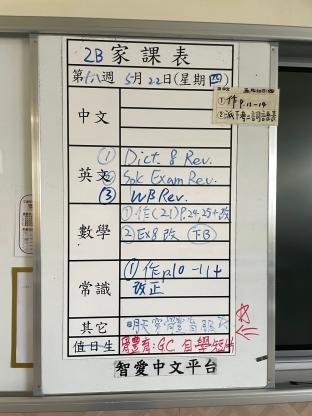 2B 家課表
第十八週 5月22日(星期四)
①作 P.12-14
中文
英文
① Dict. 8 Rev.
② Spk Exam Rev.
③ WB Rev.
數學
①作(21) P.24,25+改
②Ex8 改 下B
常識
①作p10-11+
改正
其它
明天穿體育服
值日生
體育:GC 自學短片
智愛中文平台